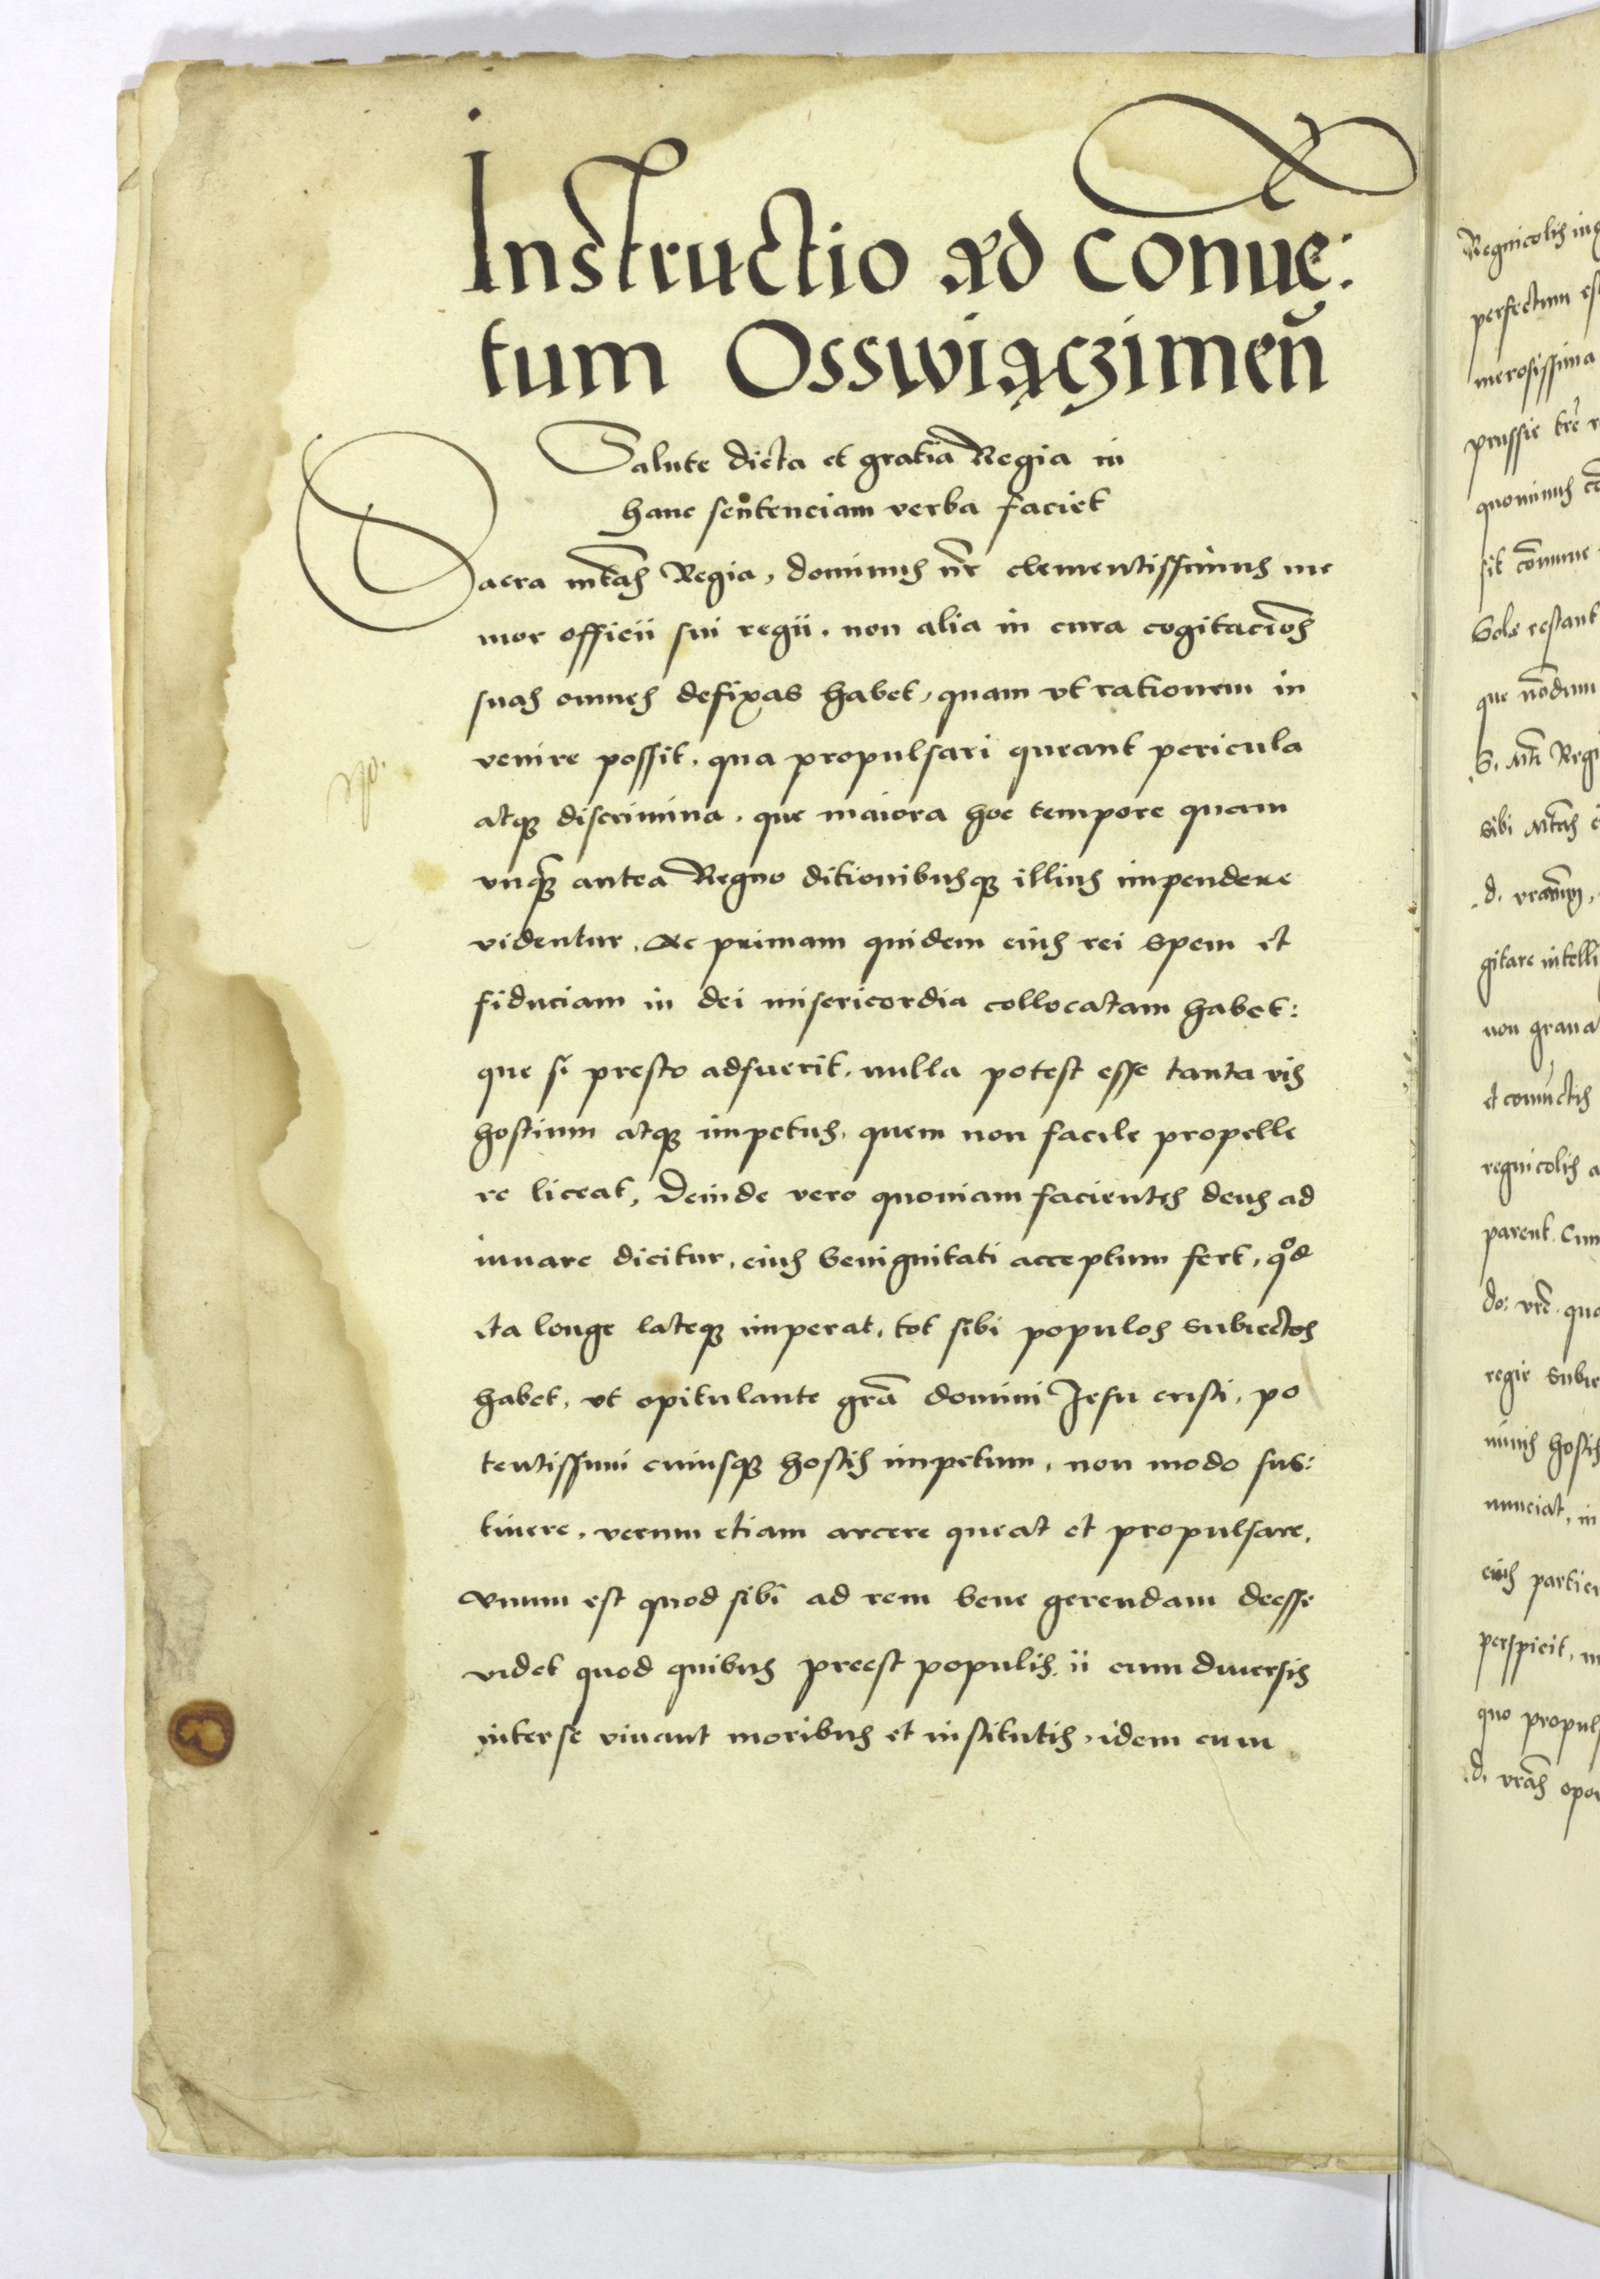 Instructio ad conue:
tum Osswiączimeñ
Salute dicta et gratia Regia in
hanc sentenciam verba faciet
Sacra mtas Regia, dominus nr̃ clementissimus me
mor officii sui regii, non alia in cura cogitaciões
suas omnes defixas habet, quam vt rationem in
venire possit, qua propulsari queant pericula
atq discrimina, que maiora hoc tempore quam
vnq̃ antea Regno ditionibusq illius impendere
videntur, Ac primam quidem eius rei spem et
fiduciam in dei misericordia collocatam habet:
que si presto adfuerit, nulla potest esse tanta vis
hostium atq impetus, quem non facile propelle
re liceat, Deinde vero quoniam facientes deus ad
iuuare dicitur, eius benignitati acceptum fert, qod
ita longe lateq imperat, tot sibi populos subiectos
habet, vt opitulante grã domini Jesu cristi, po
tentissimi cuiusq hostis impetum, non modo sus:
tinere, verum etiam arcere queat et propulsare,
vnum est quod sibi ad rem bene gerendam deesse
videt quod quibus preest populis, ii cum diuersis
inter se viuant moribus et institutis, idem cum
Regnicolis
perfectum
merosissima
prussie tr̃e
quominus
sit cõmune
Sole restant
que nõdum
S. Mti Regi
sibi Mtas
gitare intelli
non graua
et coniuctis
regnicolis a
parent. Cum
do: vrẽ. quo
regie subie
nimis hostis
nunciat, in
eius partier
perspicit, in
quo propuls
.d. vrãs opor